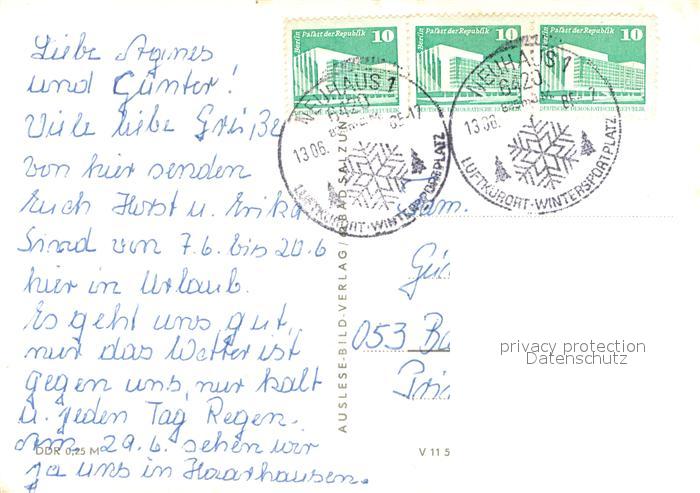 Liebe Agnes
und Günter!
Viele liebe Grüße
von hier senden
Euch Horst u. Erika
Sind von 7.6. bis 20.6
hier in Urlaub.
Es geht uns gut,
nur das Wetter ist
gegen uns, nur kalt
u. jeden Tag Regen.
Am 29.6. sehen wir
ja uns in Haarhausen.
DDR 0,25 M
AUSLESE-BILD-VERLAG / BAD SALZUN
V 11 5
Berlin Palast der Republik 10
Berlin Palast der Republik 10
Berlin Palast der Republik 10
DEUTSCHE DEMOKRATISCHE REPUBLIK
NEUHAUS 1
6420
13.06. 85-17
LUFTKURORT-WINTERSPORTPLATZ
NEUHAUS 1
6420
13.06. 85-17
LUFTKURORT-WINTERSPORTPLATZ
am.
Gü
053 Ba
privacy protection
Datenschutz